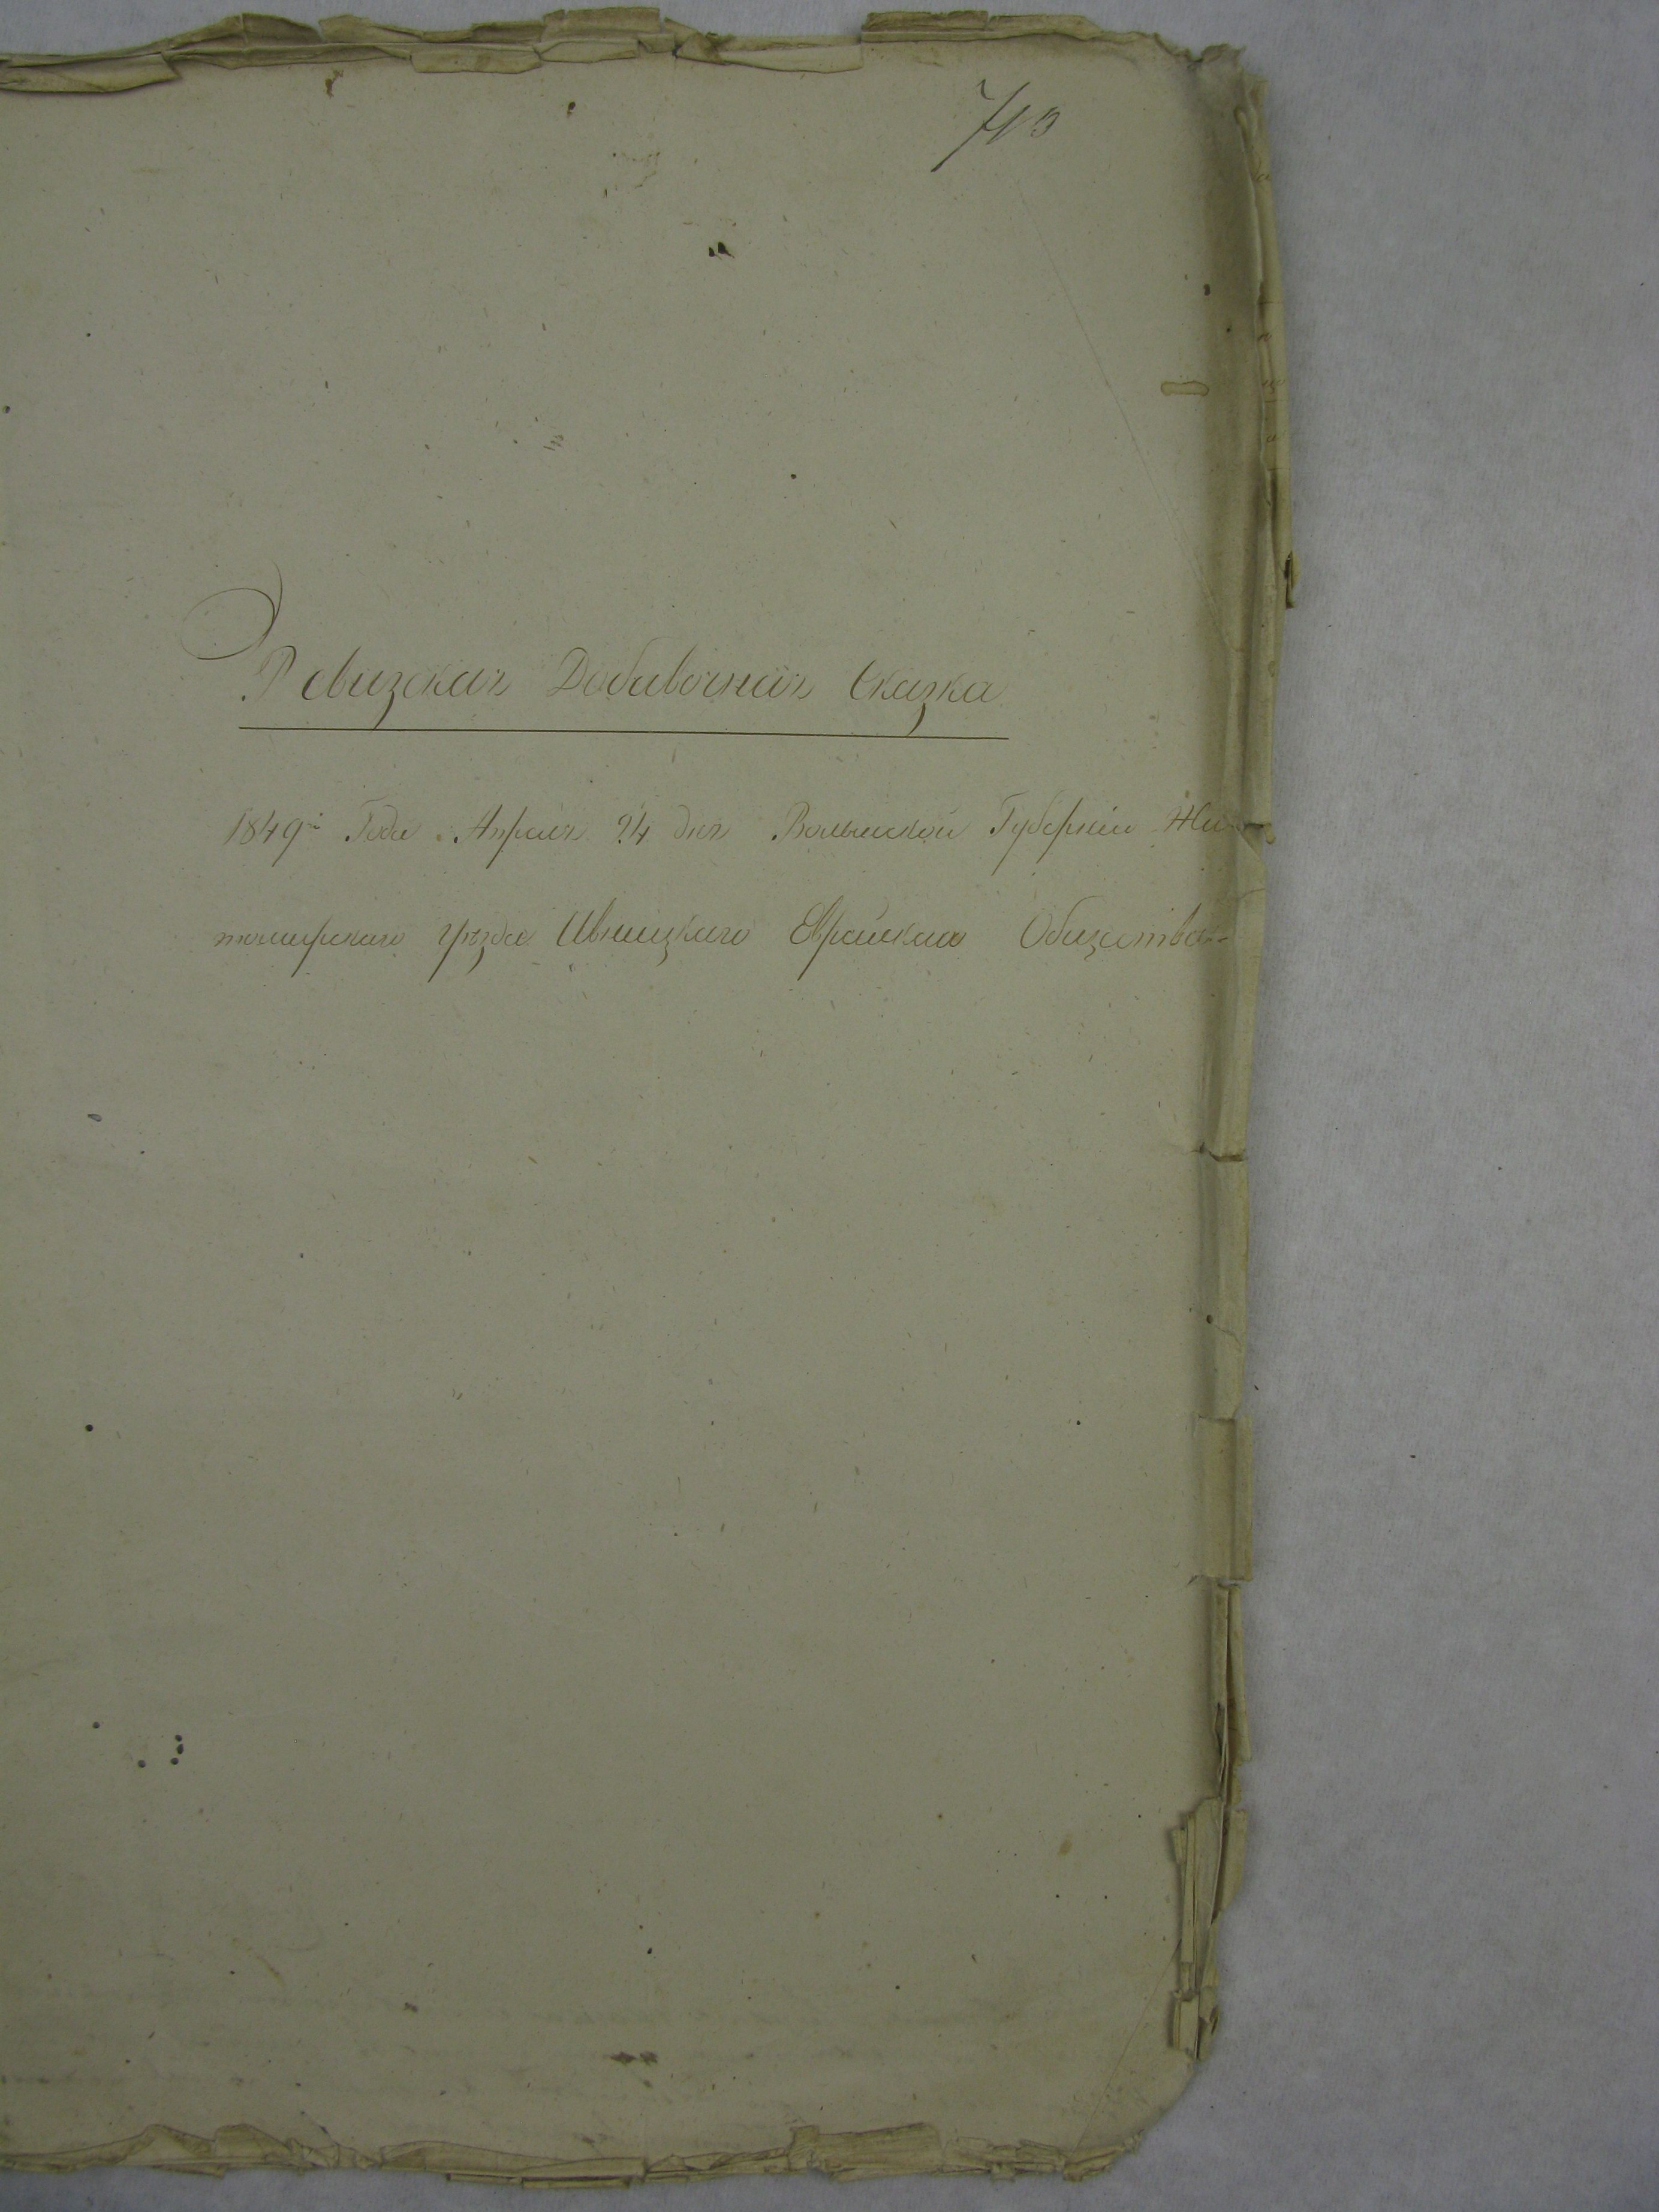 713
Ревизская Добавочная Сказка
1849го Года Апреля 24 дня Волынской Губернии Жи-
томирскаго уѣзда Ивницкаго Еврейскаго Общества